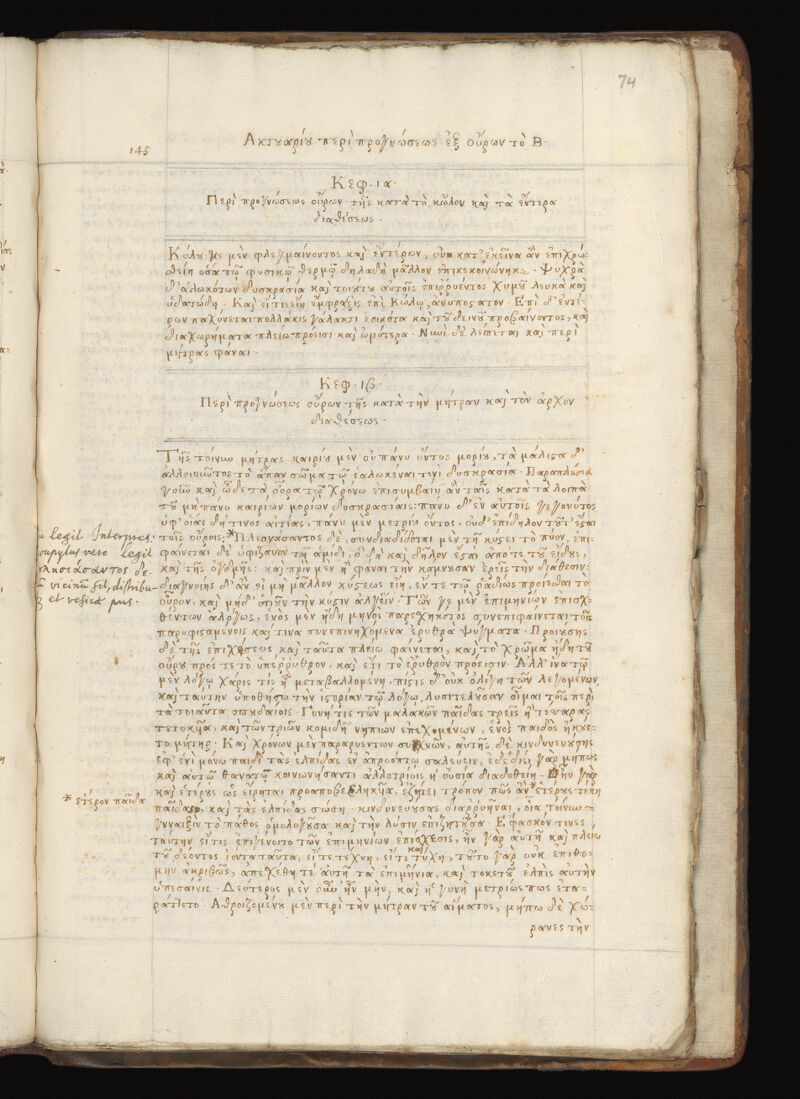 74
145
Ἀκτουαρίου περὶ προγνώσεως ἐξ οὔρων τὸ Β.
Κεφ. ια.
Περὶ προγνώσεως οὔρων τῆς κατὰ τὸ κῶλον καὶ τὰ ἔντερα
διαθέσεως.
μὲν φλεγμαίνοντος καὶ ἐντέρων, κατ' ἐκεῖνα ἂν ἐπιχρω-
σθείη ὅσα τῷ φυσικῷ θερμῷ δηλαδὴ μᾶλλον ἐπικεκοινώνηκε. Ψυχρᾷ
δ' ἁλωκότων δυσκρασίᾳ καὶ τοιούτου αὐτοῖς ἐπιρρυέντος χυμοῦ λευκὰ καὶ
ὑδατώδη. Καὶ εἴ τις εἴη ἔμφραξις ἐπὶ κώλῳ, ἀνυπόστατον. Ἐπὶ δ' ἐντέ-
ρων παχύνεται πολλάκις γάλακτι ἐοικότα καὶ τοῦ δεινοῦ προβαίνοντος, καὶ
διαχωρήματα πλείω πρόεισι καὶ ὠμότερα. Νυνὶ δὲ λείπεται καὶ περὶ
μήτρας φάναι.
Κεφ. ιβ.
Περὶ προγνώσεως οὔρων τῆς κατὰ τὴν μήτραν καὶ τὸν ἀρχὸν
διαθέσεως.
Τῆς τοίνυν μήτρας καιρίου μὲν οὐ πάνυ ὄντος μορίου, τὰ μάλιστα δ'
ἀλλοιοῦντος τὸ ἅπαν σῶμα τῷ ἑαλωκέναι τινὶ δυσκρασίᾳ. Παραπλήσια
γοῦν καὶ ὧδε τὰ οὖρα τῷ χρόνῳ ἐπισυμβαίη ἂν ταῖς κατὰ τὰ λοιπὰ
τοῦ μὴ πάνυ καιρίων μορίων δυσκρασίαις: πάνυ δ' ἐν αὐτοῖς γεγονότος
ὑφ' οἵας δή τινος αἰτίας, πάνυ μὲν μετρίου ὄντος, οὐδ' ἐπίδηλον τοῦτ' ἔσται
τοῖς οὔροις: *Πλεονάσαντος δὲ, συνδιαδίδοται μὲν τῇ κύστει τὸ πύον, ἐπι-
φαίνεται δὲ ὑφιζάνον τῇ ἀμίδι, ὃ δὴ καὶ δῆλον ἔσται ἀπό τε τοῦ εἴδους,
καὶ τῆς ὀσμῆς: καὶ πρὶν μὲν ἢ φάναι τὴν κάμνουσαν ἐρεῖς τὴν διάθεσιν:
διαγνοίης δ' ἂν εἰ μὴ μᾶλλον κύστεως εἴη, ἔν τε τῷ ῥᾳδίως προϊέσθαι τὸ
οὖρον, καὶ μηδ' τὴν κύστιν ἀλγεῖν. Τῶν γε μὲν ἐπιμηνίων ἐπισχε-
θέντων ἀθρόως, ἑνὸς μὲν ἤδη μηνὸς παρῳχηκότος συνεπιφαίνεται τοῖς
παρυφισταμένοις καί τινα συνεπινηχόμενα ἐρυθρὰ ψύγματα. Προϊούσης
δὲ τῆς ἐπισχέσεως, καὶ ταῦτα πλείω φαίνεται, καὶ τὸ χρῶμα ἤδη τοῦ
οὔρου πρός τε τὸ ὑπέρυθρον, καὶ ἔτι τὸ ἐρυθρὸν πρόεισιν. Ἀλλ' ἵνα τῷ
μὲν λόγῳ χάρις τις ᾖ μεταβαλλομένη, πίστις δ' οὐκ ὀλίγη τῶν λεγομένων,
καὶ ταύτην ὑποθήσω τὴν ἱστορίαν τῷ λόγῳ, λυσιτελοῦσαν οἶμαι τοῖς περὶ
τὰ τοιαῦτα σπουδαίοις. Γυνή τις τῶν μαλακῶν παῖδας τρεῖς ἢ τέτταρας
τετοκυῖα, καὶ τῶν τριῶν κομιδῇ νηπίων ἐπεχομένων, ἑνὸς παιδὸς ἠκούε-
το μήτηρ. Καὶ χρόνων μὲν παραρυέντων συχνῶν, αὐτῆς δὲ κινδυνευούσης
ἐφ' ἑνὶ μόνῳ παιδὶ τὰς ἐλπίδας ἐν ἀπροόπτῳ σαλεύειν, ἐδεδίει γὰρ μήπως
καὶ αὐτῷ θανάτῳ κοινωνήσαντι ἀλλοτρίοις ἡ οὐσία διαδοθείη. ἣν γὰρ
καὶ ἑτέρους ὡς εἴρηται προαποβεβληκυῖα, ἐζήτει τρόπον πῶς ἂν *ἑτέρους τέκῃ
παῖδας, καὶ τὰς ἐλπίδας σώσῃ κινδυνευούσας διαρρυῆναι, οἷα τοίνυν
γυναιξὶν τὸ πάθος ὁμολογοῦσα καὶ τὴν λύσιν ἐπιζητοῦσα. Ἔφασκόν τινες
ταύτην εἴ τις ἐπιγένοιτο τῶν ἐπιμηνίων ἐπίσχεσις, ἦν γὰρ αὐτῇ καὶ πλείω
τοῦ δέοντος ἰόντα ταῦτα, εἴτε τέχνῃ, εἴτε καὶ τύχῃ, τοῦτο γὰρ οὐκ ἐπιθό-
μην ἀκριβῶς, ἀπεσχέθη τε αὐτῇ τὰ ἐπιμήνια, καὶ τοκετοῦ ἐλπὶς αὐτὴν
ὑπέσαινε. Δεύτερος μὲν οὖν ἦν μὴν, καὶ ἡ γυνὴ μετρίως πως ἐτα-
ράττετο. Ἀθροιζομένου μὲν περὶ τὴν μήτραν τοῦ αἵματος, μήπω δὲ χώ-
ρας τὴν
legit Interpres.
vero legit
πλησιάσαντος δὲ
vicinũ sit, distribu-
et vesicæ pus.
* ἕτερον παῖδα